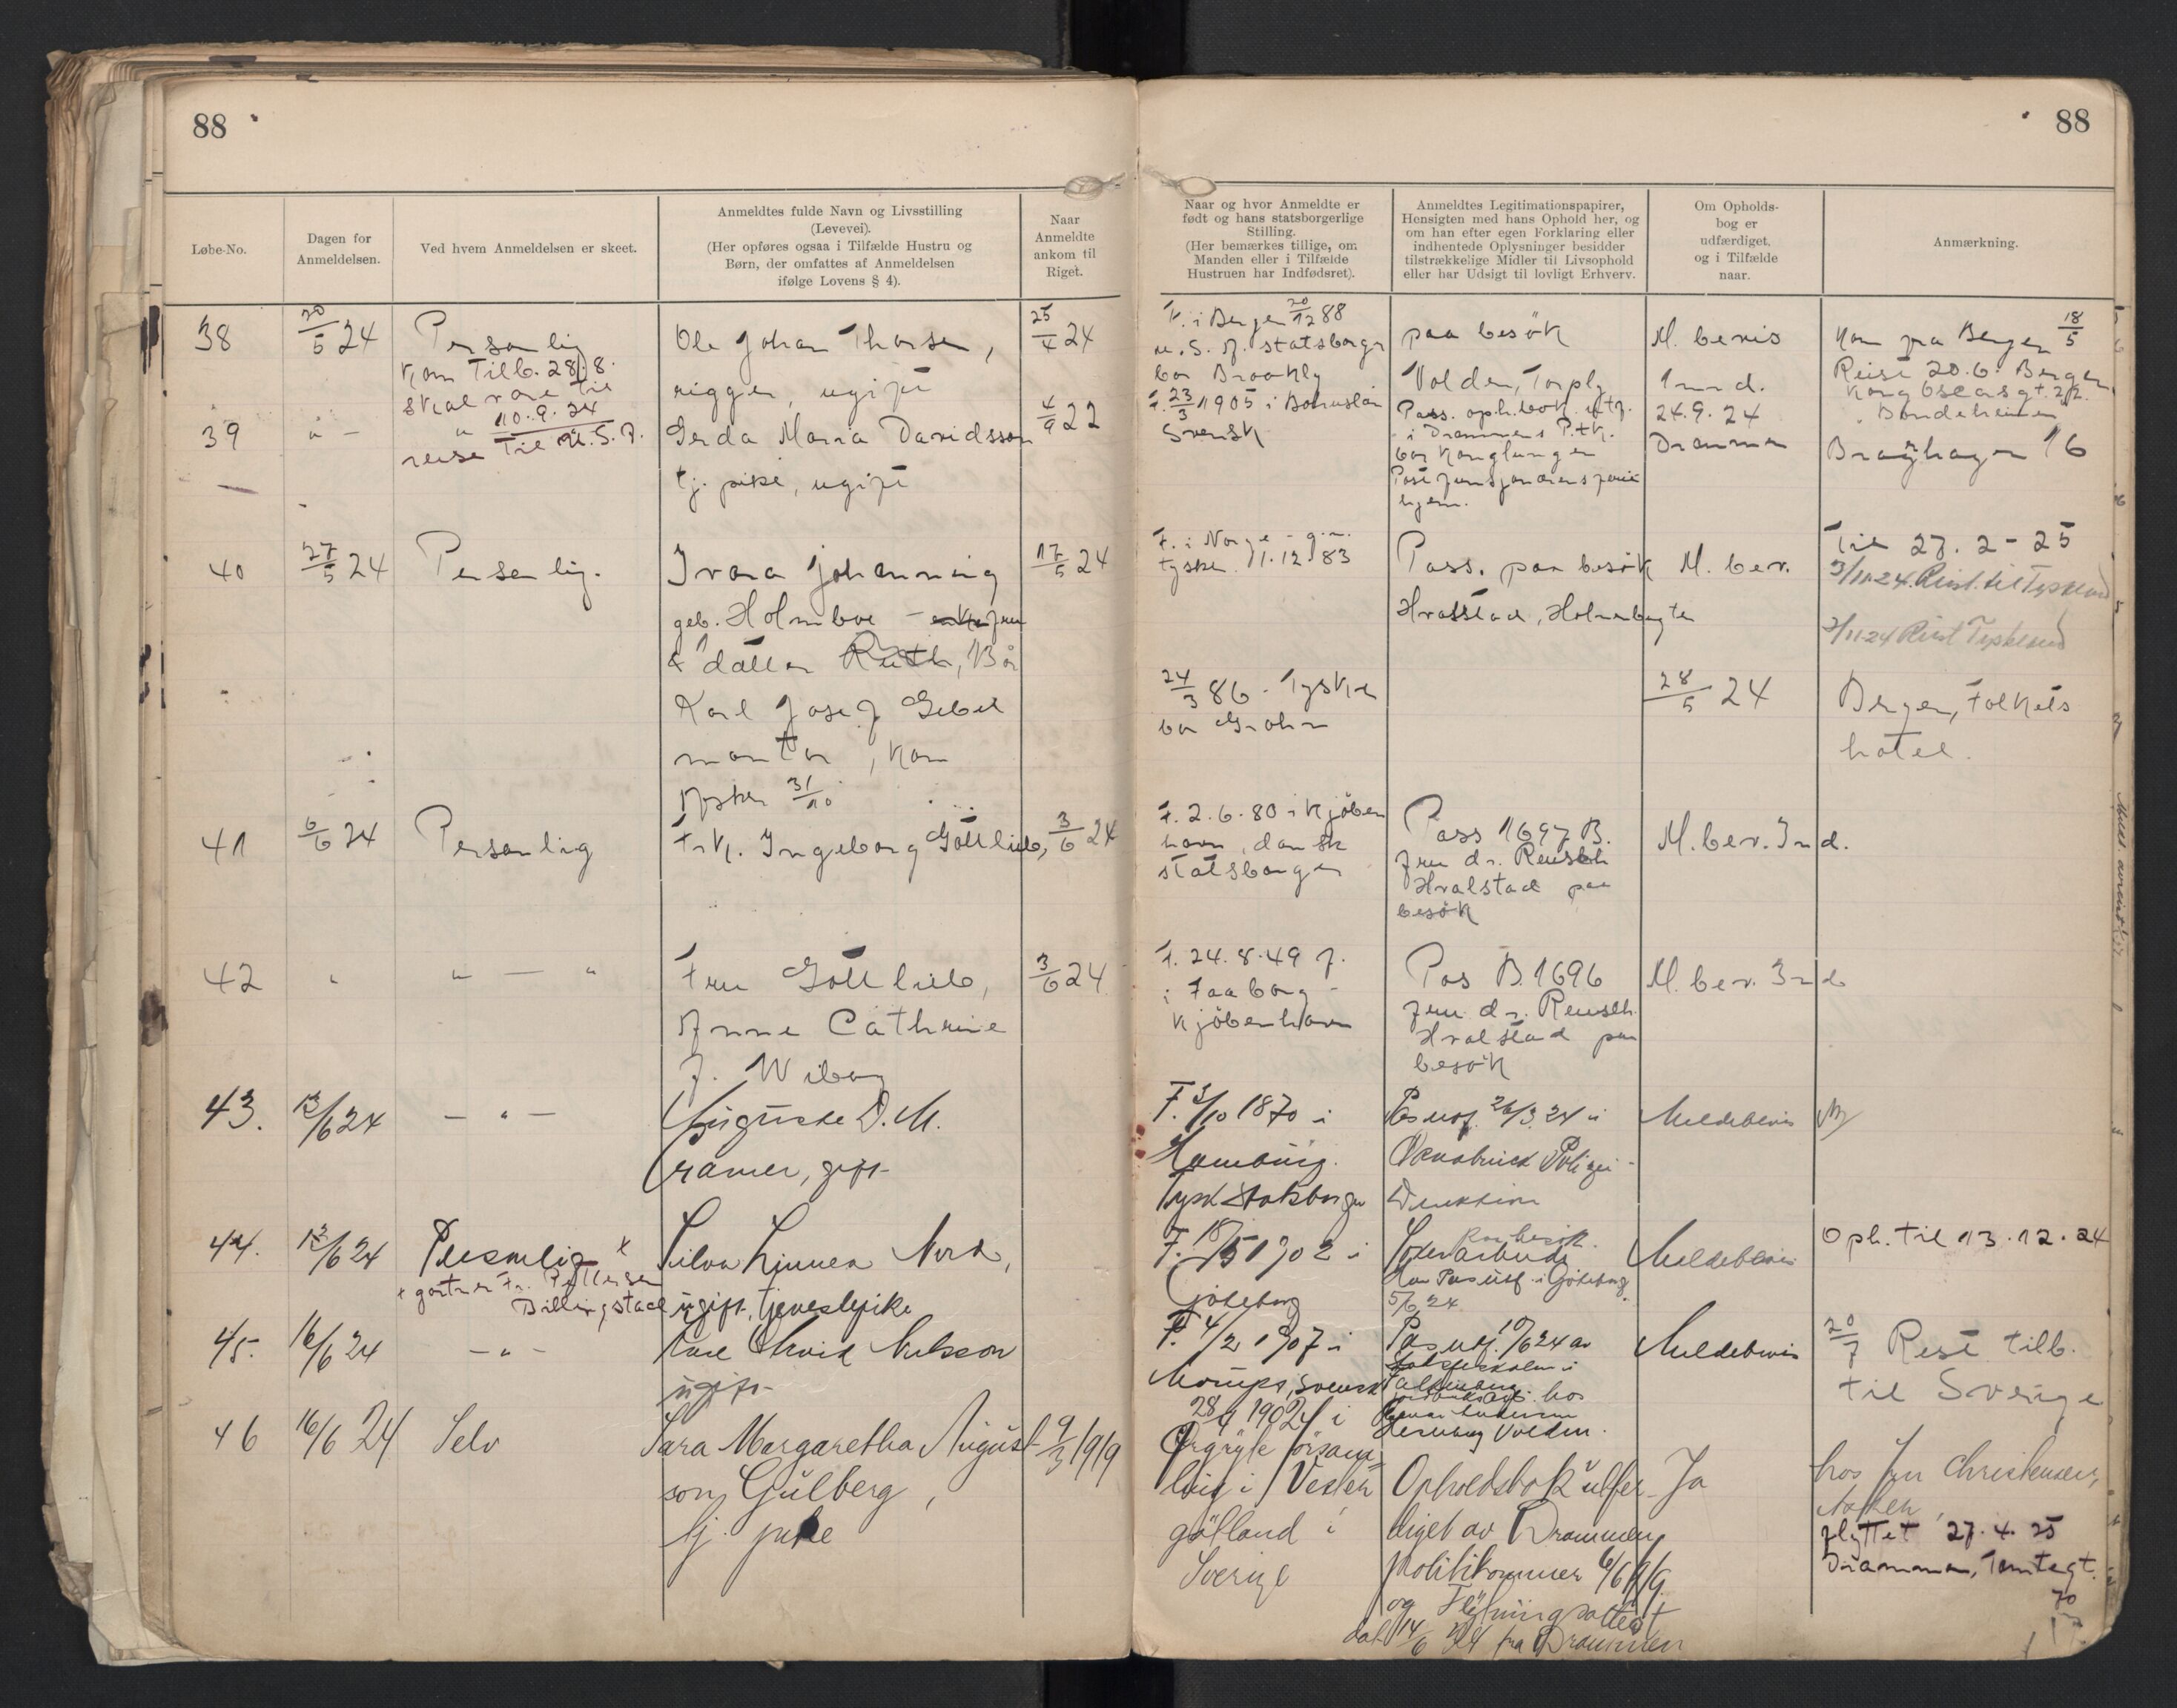 88
88
Løbe-No.
Dagen for
Anmeldelsen.
Ved hvem Anmeldelsen er skeet.
Anmeldtes fulde Navn og Livsstilling
(Levevei).
(Her opføres ogsaa i Tilfælde Hustru og
Børn, der omfattes af Anmeldelsen
ifølge Lovens § 4).
Naar
Anmeldte
ankom til
Riget.
Naar og hvor Anmeldte er
født og hans statsborgerlige
Stilling.
(Her bemærkes tillige, om
Manden eller i Tilfælde
Hustruen har Indfødsret).
Anmeldtes Legitimationspapirer,
Hensigten med hans Ophold her, og
om han efter egen Forklaring eller
indhentede Oplysninger besidder
tilstrækkelige Midler til Livsophold
eller har Udsigt til lovligt Erhverv.
Om Opholds-
bog er
udfærdiget,
og i Tilfælde
naar.
Anmærkning.
38
20/5 24
Personlig
Kom tilb. 28/8.
skal være til
10.9.24
reise til U.S.A.
Ole Johan Thorsen,
rigger, ugift
25/4 24
F. i Bergen 20/12 88
U.S.A. statsborger
bor Brooklyn
paa besök
Volden, Torply
M. bevis
1 md.
Kom fra Bergen 18/5
Reist 20.6. Bergen
39
" -
"
Gerda Maria Davidsson
tj. pike, ugift
4/9 22
F. 23/3 1905 i Bohuslän
Svensk
Pass. oph.bok utf.
i Drammens P.tk.
bor Konglungen
hjem.
24.9.24
Drammen
Bondeheimen
Braghagen 16
40
27/5 24
Personlig.
Ivara Johanning
geb. Holmboe - enke fru
& datter Ruth, 13 år
Karl Josef Gebel
montör, kom
Asker 31/10
17/5 24
F. i Norge
tysker. 11.12.83
24/3 86 - Tysker
bor Grohn
Pass. paa besök
Hvalstad, Holmenbugten
M. bev.
28/5 24
Til 27.2-25
3/11.24. Reist til Tyskland
3/11-24 Reist Tyskland
Bergen, Folkets
hotel.
41
6/6 24
Personlig
Frk. Ingeborg Gottlieb,
3/6 24
F. 2.6.80 i Kjöben
havn, dansk
statsborger
Pass 1697 B.
fru dr. Reusch
Hvalstad paa
besök
M. bev. 3 md.
42
"
" — "
Fru Gottlieb,
Anne Cathrine
f. Wiborg
3/6 24
F. 24.8.49 f.
i Faaborg -
Kjöbenhavn
Pas B. 1696
fru dr. Reusch
Hvalstad paa
besök
M. bev. 3 md
43.
13/6 24
— " —
Auguste D. M.
Cramer, gift
F. 3/10 1870 i
Hamburg.
Tysk statsborger
Pas utf. 26/3.24 i
Osnabrück Polizei-
Direktion
Meldebevis
44.
13/6 24
Personlig x
x gartner Fr. Pettersen
Billingstad
Silva Linnea Nord,
ugift, tjenestepike
F. 18/5 1902 i
Göteborg
paa besök.
Söker arbeide
Har Pas utf. i Göteborg
5/6 24
Meldebevis
Oph. til 13.12.24
45.
16/6 24
— " —
Karl Arvid Nilsson
ugift
F. 4/2 1907 i
Morups, svensk
Pas utf. 10/6 24 av
Volden.
Meldebevis
20/7 Reist tilb.
til Sverige
46
16/6 24
Selv
Sara Margaretha August-
son Gulberg,
tj. pike
9/3 1919
28/4 1902 i
Örgryte försam-
ling i Vester
götland i
Sverige
Opholdsbok utfer-
diget av Drammen
politikammer 6/6 19
og Flytningsattest
dat. 14/6 24 fra Drammen
Ja
hos fru Christensen,
Asker,
flyttet 27.4.25
Drammen, Tomtegt.
70